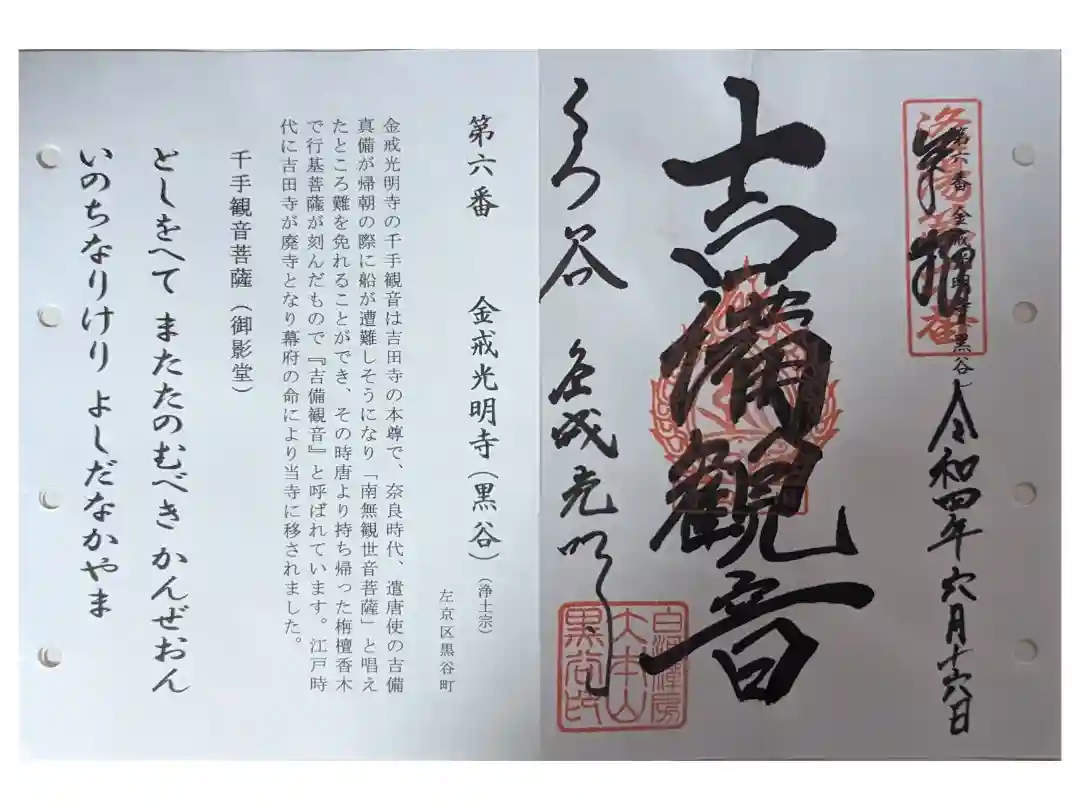 第六番 金戒光明寺(黒谷)
奉拝
令和四年六月十六日
吉備観音
くろ谷 金戒光明寺
白河禅房
大本山
黒谷印
第六番 金戒光明寺(黒谷)(浄土宗)
左京区黒谷町
金戒光明寺の千手観音は吉田寺の本尊で、奈良時代、遣唐使の吉備
真備が帰朝の際に船が遭難しそうになり「南無観世音菩薩」と唱え
たところ難を免れることができ、その時唐より持ち帰った栴檀香木
で行基菩薩が刻んだもので『吉備観音』と呼ばれています。江戸時
代に吉田寺が廃寺となり幕府の命により当寺に移されました。
千手観音菩薩(御影堂)
としをへて またたのむべき かんぜおん
いのちなりけり よしだなかやま